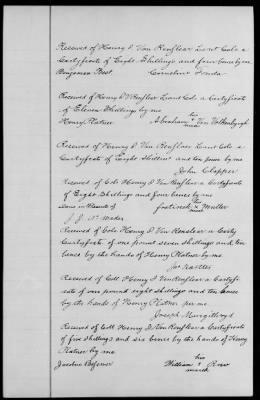 Received of Henry I Van Renslear Lieut Colo a
Certyfirate of Eight Shillings and four pence by me
Benjamin Best. Cornelius Fonda
Received of Henry I V Renslear Lieut Col a Certyfirate
of Eleven Shillings by me
his
Henry Platner Abraham x Van Valkenburgh
mark
Received of Henry I Van Renslear Lieut Colo a
Certyfirate of Eight Shillins and ten pence by me
John Clapper
Received of Colo Henry I Van Renslear a Certyfirate
of Eight Shillings and four pence by me
his
Done in Presents of x Muller
mark
Received of Colo Henry I Van Renslear a Certy
Certyfirate of one pound seven shillings and ten
pence by the hands of Henry Platner by me
Received of Coll Henry I Van Renslear a Certyfi
rate of one pound eight shillings and ten pence
by the hands of Henry Platner per me
Joseph
Received of Coll Henry I Van Renslear a Certyfirate
of five shillings and six pence by the hands of Henry
Platner by me
his
William x Row
mark